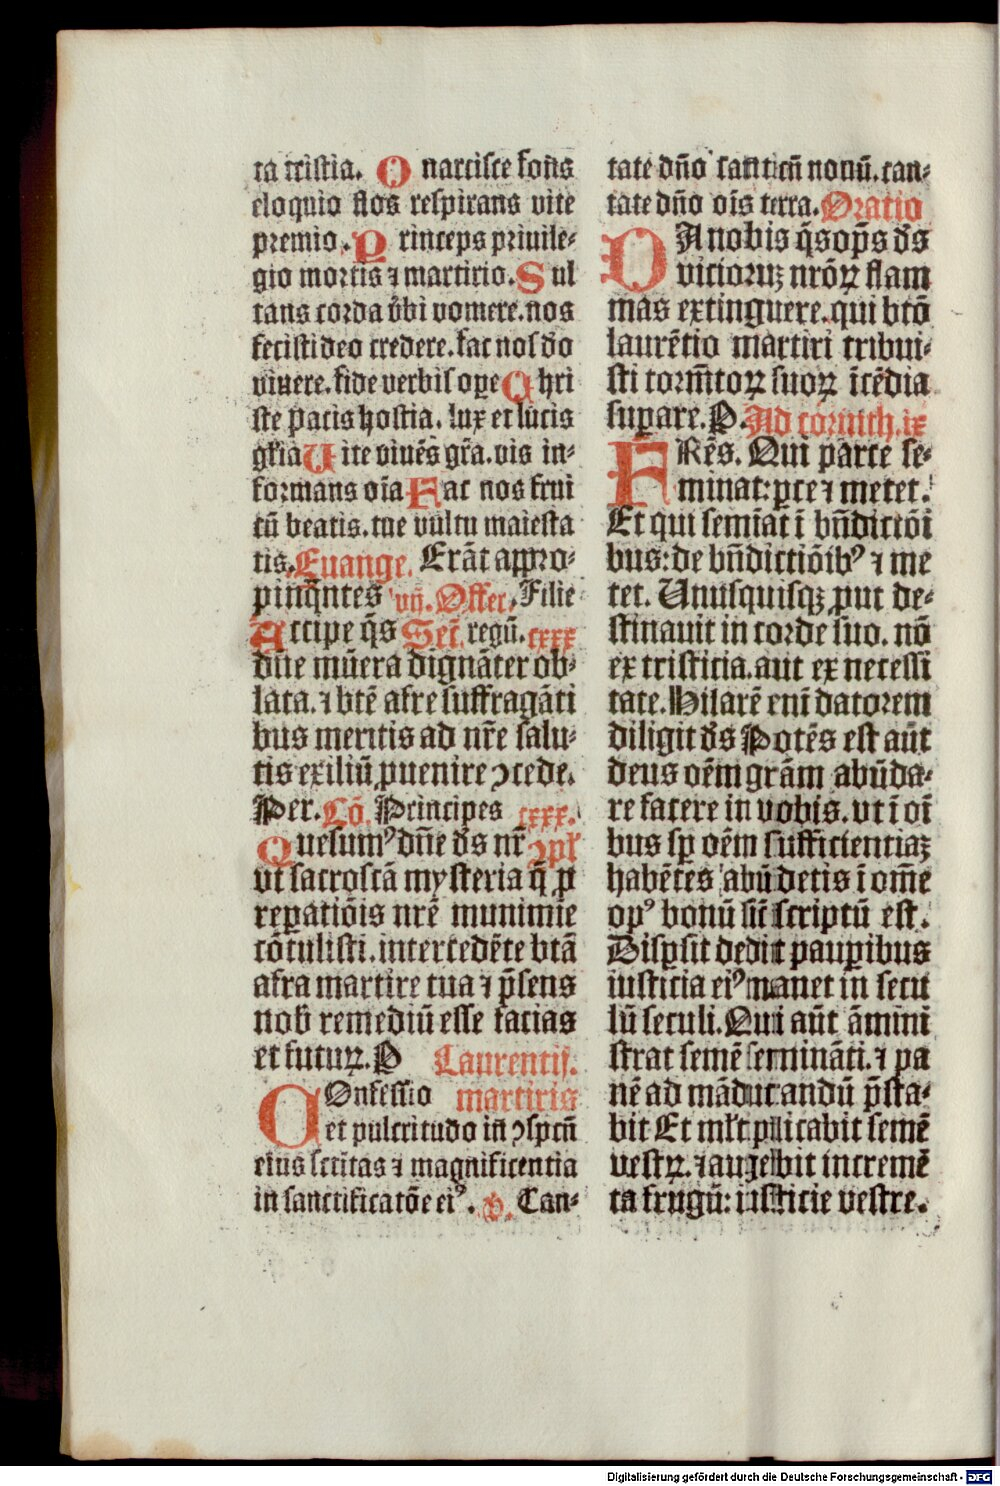 ta tristia. O narcisce fons
eloquio flos respirans vite
premio. Princeps priuile-
gio mortis ⁊ martirio. Sul
tans corda v̄bi vomere. nos
fecisti deo credere. fac nos dō
viuere. fide verbis oꝑe Chri
ste pacis hostia. lux et lucis
gl̄ia Uite viuēs gr̄a. vis in-
formans oīa Fac nos frui
cū beatis. tue vultu maiesta
tis. Euange. Erāt appro-
pinq̄ntes vij. Offer. Filie
Accipe q̄s Sec̄. regū. cxxx
dn̄e mūera dignāter ob-
lata. ⁊ btē afre suffragāti
bus meritis ad nr̄e salu-
tis exiliū ꝓuenire ꝯcede.
Per. Cō. Principes cxxx.
Quesumꝰ dn̄e ds̄ nr̄ ꝯpl̄
vt sacroscā mysteria q̄ ꝓ
reꝑatiōis nrē munimīe
cōtulisti. intercedēte btā
afra martire tua ⁊ p̄sens
nob̄ remediū esse facias
et futuꝝ. P Laurentij.
COnfessio martiris
et pulcritudo in̄ ꝯspcū
eius scītas ⁊ magnificentia
in sanctificatōe eiꝰ. v. Can-
tate dn̄o canticū nouū. can-
tate dn̄o oīs terra. Oratio
DA nobis q̄s op̄s ds̄
vicioruꝫ nrōꝝ flam
mas extinguere. qui btō
laurētio martiri tribui-
sti torm̄toꝝ suoꝝ īcēdia
suꝑare. P. Ad corinth. ix
FRēs. Qui parce se-
minat: ꝑce ⁊ metet.
Et qui semīat ī bn̄dictōi
bus: de bn̄dictiōibꝰ ⁊ me
tet. Unusquisqꝫ ꝓut de-
stinauit in corde suo. nō
ex tristicia. aut ex necessi
tate. Hilarē enī datorem
diligit ds̄ Potēs est aūt
deus oēm grām abūda-
re facere in vobis. vt ī oī
bus sꝑ oēm sufficientiaꝫ
habētes abūdetis ī om̄e
opꝰ bonū sic̄ scriptū est.
Disꝑsit dedit pauꝑibus
iusticia eiꝰ manet in secu
lū seculi. Qui aūt āmini
strat semē semināti. ⁊ pa
nē ad māducandū p̄sta-
bit Et ml̄tiplicabit semē
vestꝝ. ⁊ augebit incremē
ta frugū: iusticie vestre.
Digitalisierung gefördert durch die Deutsche Forschungsgemeinschaft - DFG